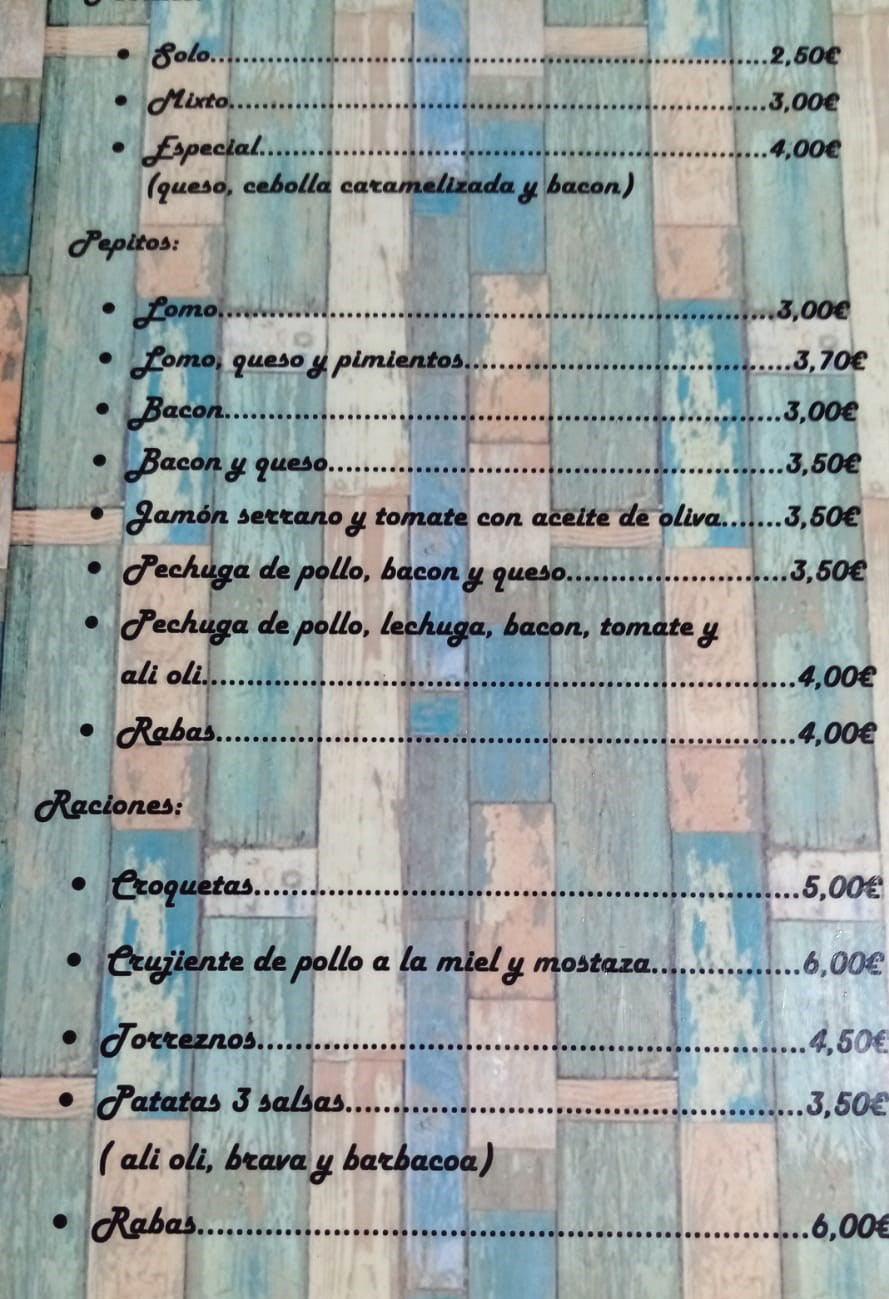 Solo..................................................................2,50€
Mixto................................................................3,00€
Especial.............................................................4,00€
(queso, cebolla caramelizada y bacon)
Pepitos:
Lomo..................................................................3,00€
Lomo, queso y pimientos.......................................3,70€
Bacon.................................................................3,00€
Bacon y queso......................................................3,50€
Jamón serrano y tomate con aceite de oliva.......3,50€
Pechuga de pollo, bacon y queso..........................3,50€
Pechuga de pollo, lechuga, bacon, tomate y
ali oli....................................................................4,00€
Rabas..................................................................4,00€
Raciones:
Croquetas............................................................5,00€
Crujiente de pollo a la miel y mostaza.................6,00€
Torreznos............................................................4,50€
Patatas 3 salsas...................................................3,50€
( ali oli, brava y barbacoa)
Rabas..................................................................6,00€